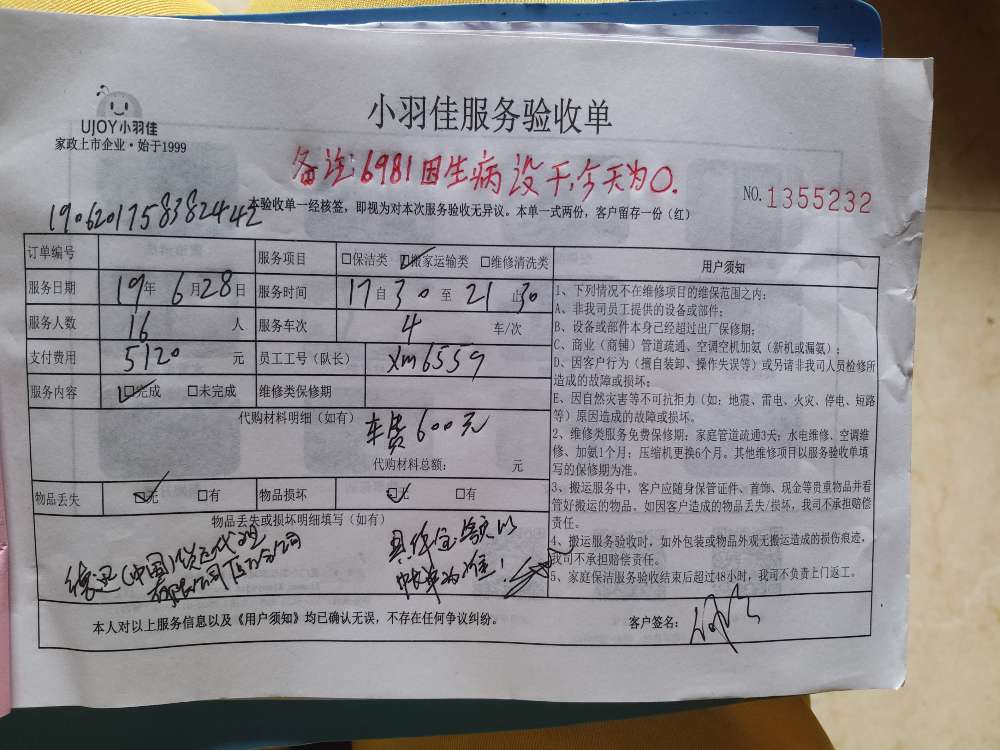 UJOY小羽佳
家政上市企业·始于1999
小羽佳服务验收单
备注:6981因生病没干,今天为0.
NO.1355232
1906201758382442
本验收单一经核签，即视为对本次服务验收无异议。本单一式两份，客户留存一份（红）
订单编号 服务项目 □保洁类 □搬家运输类 □维修清洗类
服务日期 19年 6月28日 服务时间 17自30至21止30
服务人数 16 人 服务车次 4 车/次
支付费用 5120 元 员工工号（队长） xm6559
服务内容 □完成 □未完成 维修类保修期
代购材料明细（如有） 车费600元
代购材料总额： 元
物品丢失 □无 □有 物品损坏 □无 □有
物品丢失或损坏明细填写（如有）
(中国)货运代理
有限公司 分公司
具体金额以
为准!
用户须知
1、下列情况不在维修项目的维保范围之内：
A、非我司员工提供的设备或部件；
B、设备或部件本身已经超过出厂保修期；
C、商业（商铺）管道疏通、空调空机加氨（新机或漏氨）；
D、因客户行为（擅自装卸、操作失误等）或另请非我司人员检修所
造成的故障或损坏；
E、因自然灾害等不可抗拒力（如：地震、雷电、火灾、停电、短路
等）原因造成的故障或损坏。
2、维修类服务免费保修期：家庭管道疏通3天；水电维修、空调维
修、加氨1个月；压缩机更换6个月。其他维修项目以服务验收单填
写的保修期为准。
3、搬运服务中，客户应随身保管证件、首饰、现金等贵重物品并看
管好搬运的物品。如因客户造成的物品丢失/损坏，我司不承担赔偿
责任。
4、搬运服务验收时，如外包装或物品外观无搬运造成的损伤痕迹，
我司不承担赔偿责任。
5、家庭保洁服务验收结束后超过48小时，我司不负责上门返工。
本人对以上服务信息以及《用户须知》均已确认无误，不存在任何争议纠纷。 客户签名：